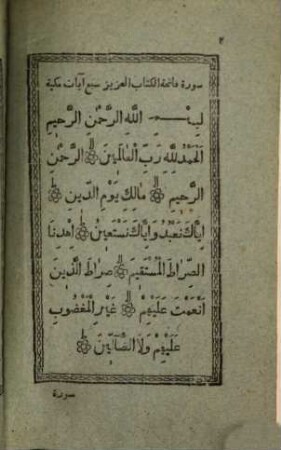 ٢
سورة فاتحة الكتاب العزيز سبع آيات مكية
بِسْمِ اللّٰهِ الرَّحْمٰنِ الرَّحِيمِ
اَلْحَمْدُ لِلّٰهِ رَبِّ الْعَالَمِينَ ۝ الرَّحْمٰنِ
الرَّحِيمِ ۝ مَالِكِ يَوْمِ الدِّينِ ۝
اِيَّاكَ نَعْبُدُ وَاِيَّاكَ نَسْتَعِينُ ۝ اِهْدِنَا
الصِّرَاطَ الْمُسْتَقِيمَ ۝ صِرَاطَ الَّذِينَ
اَنْعَمْتَ عَلَيْهِمْ ۝ غَيْرِ الْمَغْضُوبِ
عَلَيْهِمْ وَلَا الضَّالِّينَ ۝
سورة